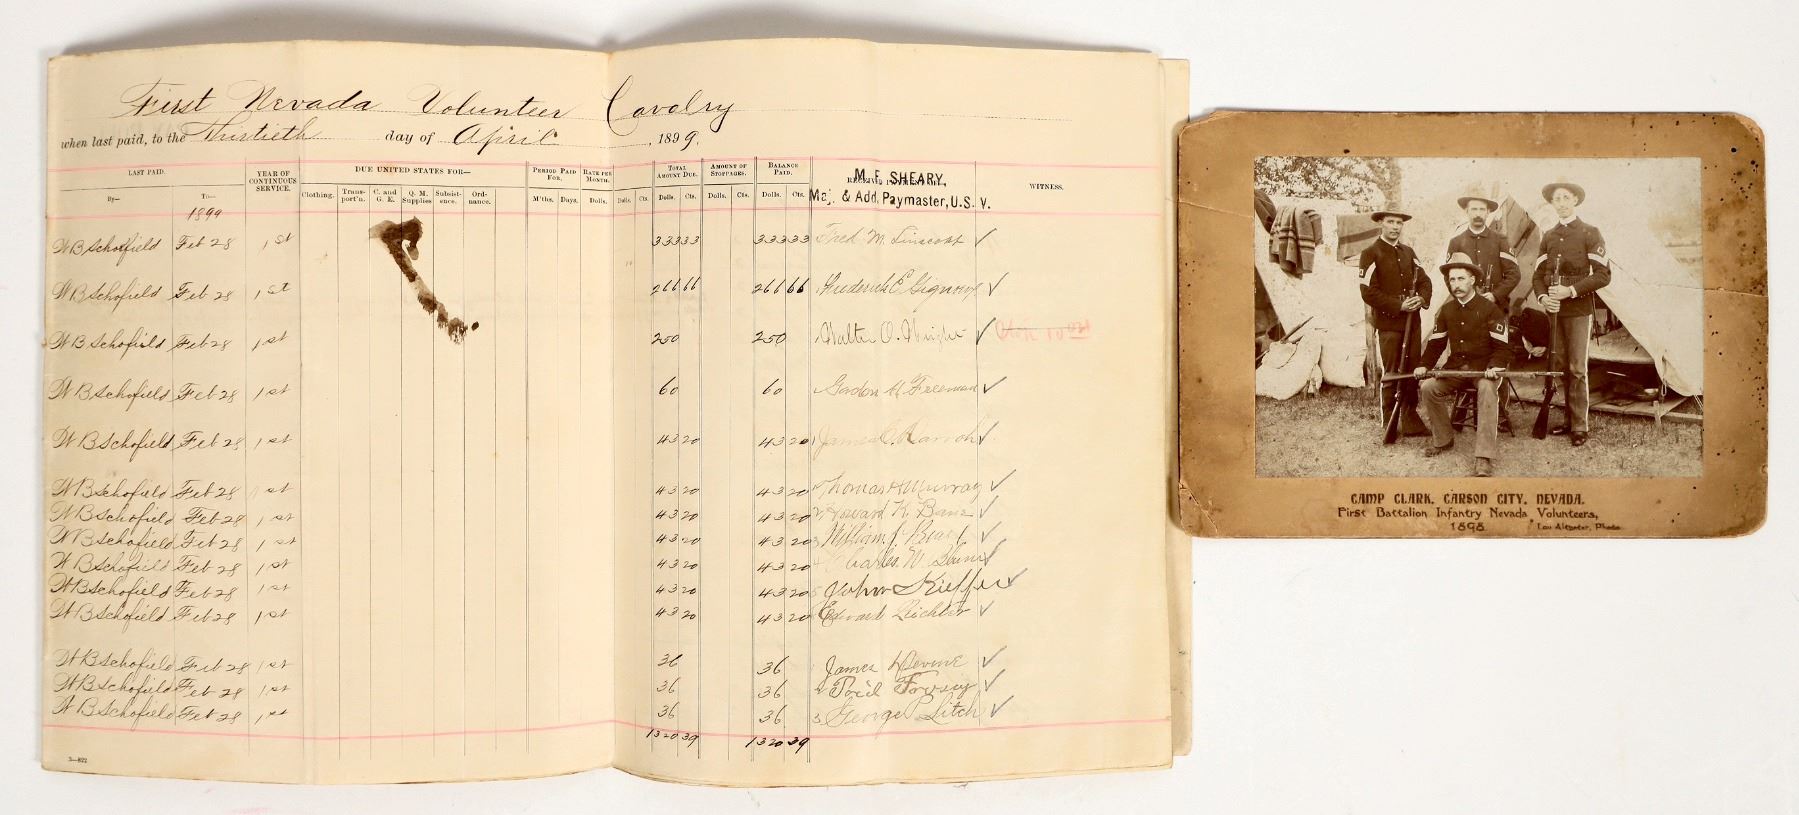 First Nevada Volunteer Cavalry
when last paid, to the Thirtieth day of April , 1899.
LAST PAID. YEAR OF CONTINUOUS SERVICE. DUE UNITED STATES FOR— PERIOD PAID FOR. RATE PER MONTH. TOTAL AMOUNT DUE. AMOUNT OF STOPPAGES. BALANCE PAID. WITNESS.
M. F. SHEARY,
Maj. & Add. Paymaster, U.S. V.
By— To— Clothing. Transport'n. C. and G. E. Q. M. Supplies Subsistence. Ordnance. M'ths. Days. Dolls. Dolls. Cts. Dolls. Cts. Dolls. Cts. Dolls. Cts.
1899
W B Schofield Feb 28 1st 333 33 333 33 Fred M. Linscott ✓
W B Schofield Feb 28 1st 266 66 266 66 Frederick C Gignoux ✓
W B Schofield Feb 28 1st 250 250 Walter O. Wright ✓
W B Schofield Feb 28 1st 60 60 Freeman ✓
W B Schofield Feb 28 1st 43 20 43 20 1 James ✓
W B Schofield Feb 28 1st 43 20 43 20 Thomas Murray ✓
W B Schofield Feb 28 1st 43 20 43 20 2 Howard K. Bane ✓
W B Schofield Feb 28 1st 43 20 43 20 3 William J. ✓
W B Schofield Feb 28 1st 43 20 43 20 4 Charles W. ✓
W B Schofield Feb 28 1st 43 20 43 20 5 John Kieffer ✓
W B Schofield Feb 28 1st 43 20 43 20 Edward Richter ✓
W B Schofield Feb 28 1st 36 36 James Devine ✓
W B Schofield Feb 28 1st 36 36 2 ✓
W B Schofield Feb 28 1st 36 36 3 George P Litch ✓
1320 39 1320 39
3—822
CAMP CLARK, CARSON CITY, NEVADA.
First Battalion Infantry Nevada Volunteers,
1898
Photo